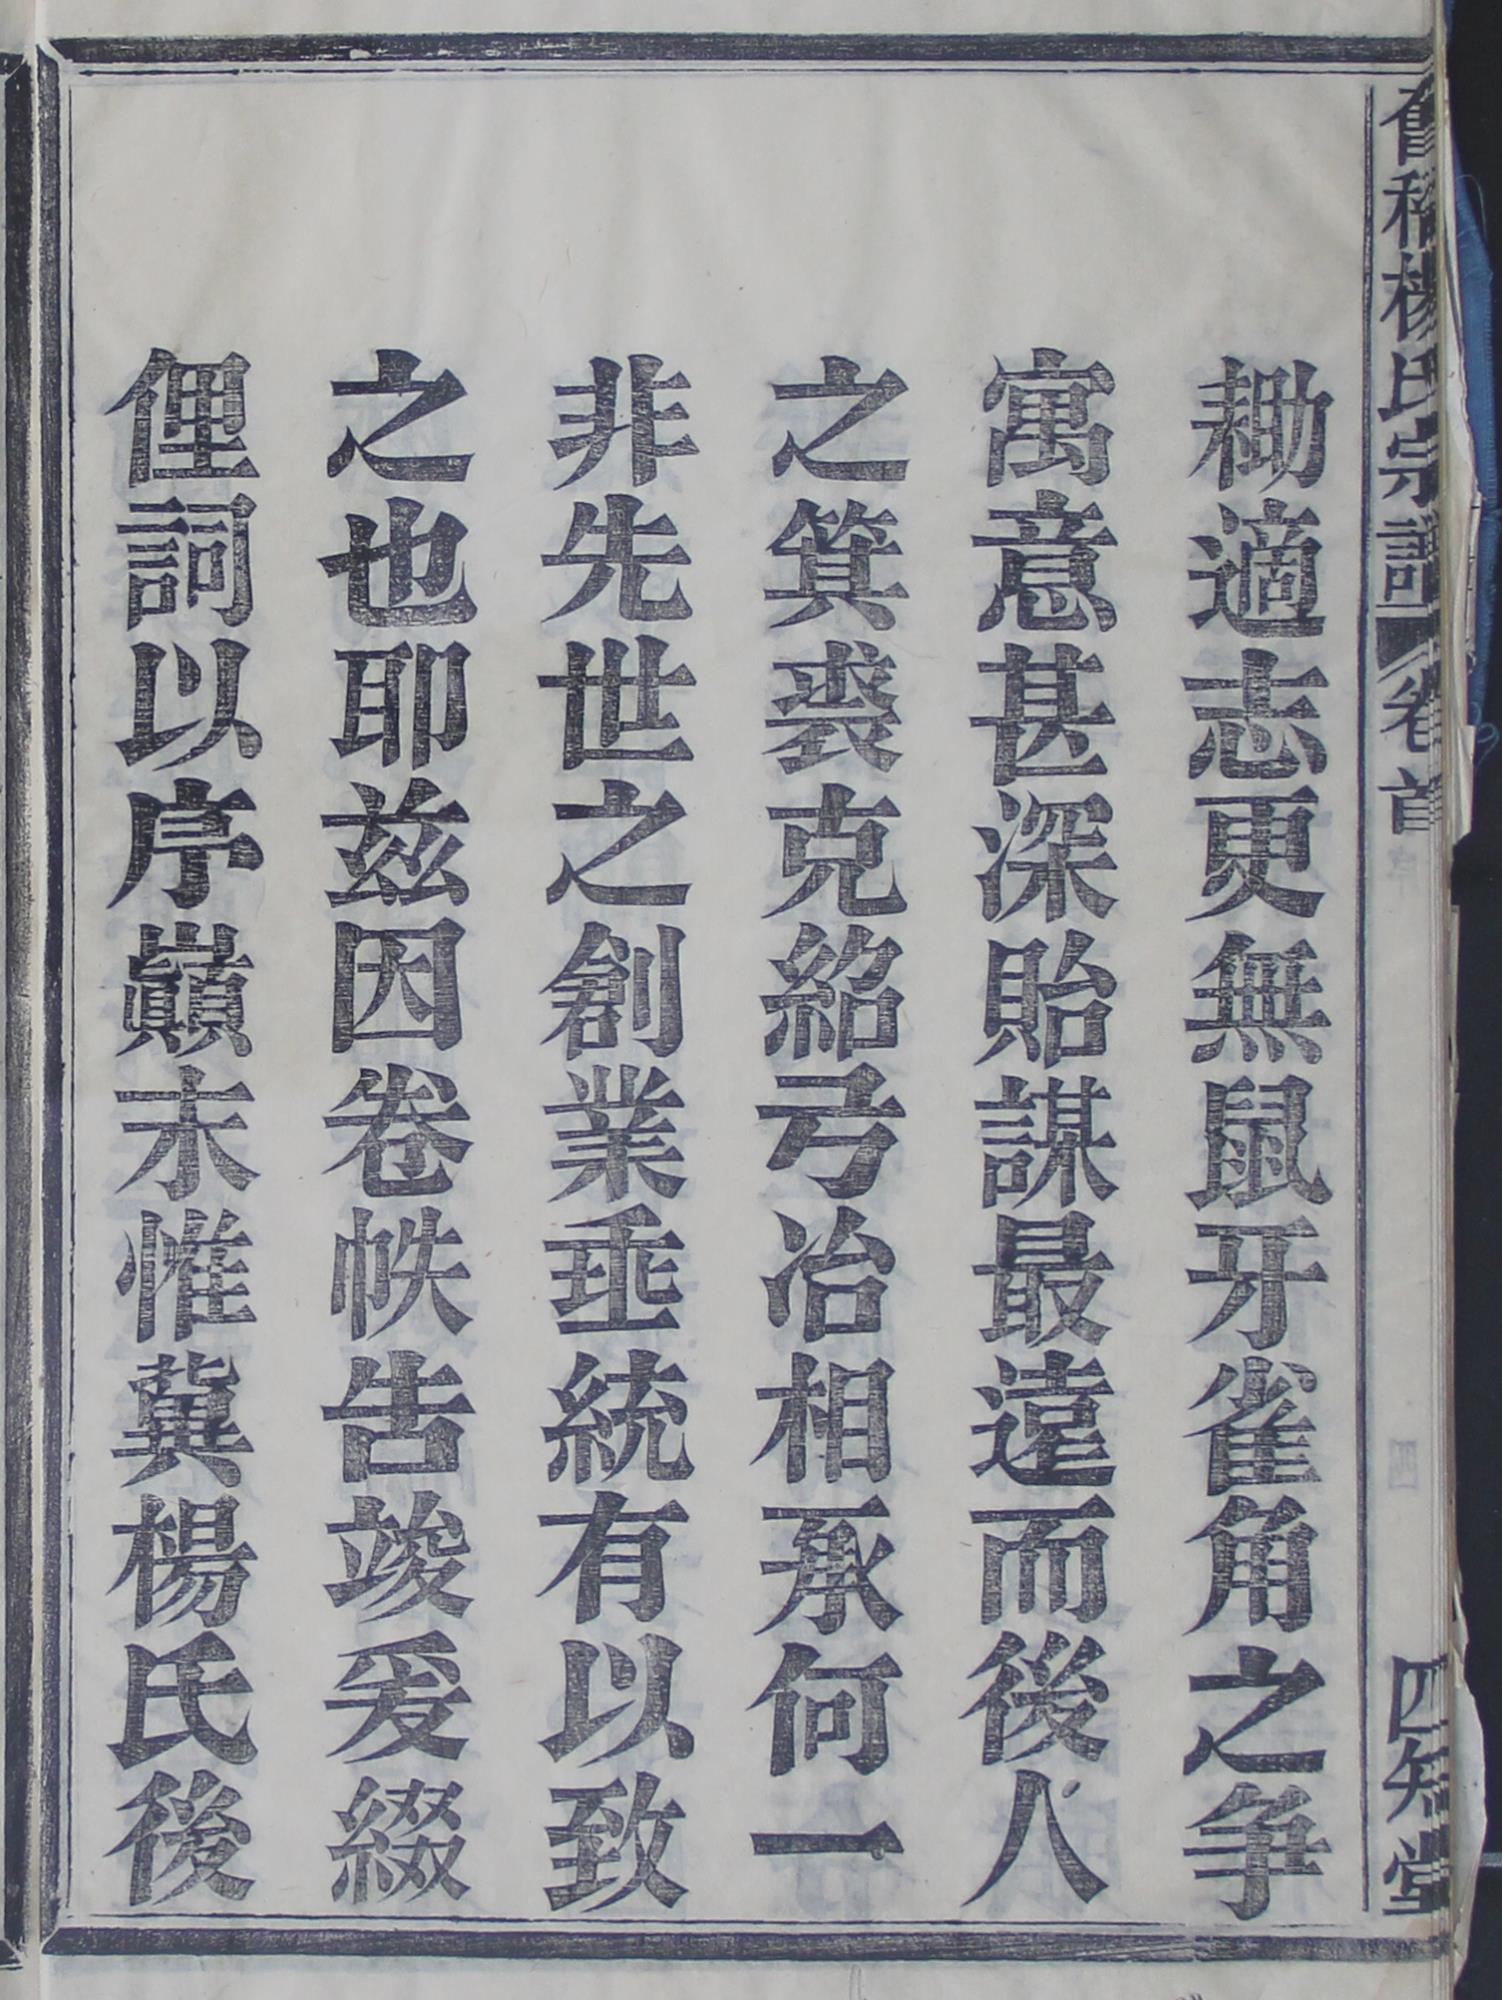 舊楊氏宗譜 卷首 四知堂
耡適志更無鼠牙雀角之爭
寓意甚深貽謀最遠而後人
之箕裘克紹弓冶相承何一
非先世之創業垂統有以致
之也耶兹因卷帙告竣爰綴
俚詞以序巔末惟冀楊氏後